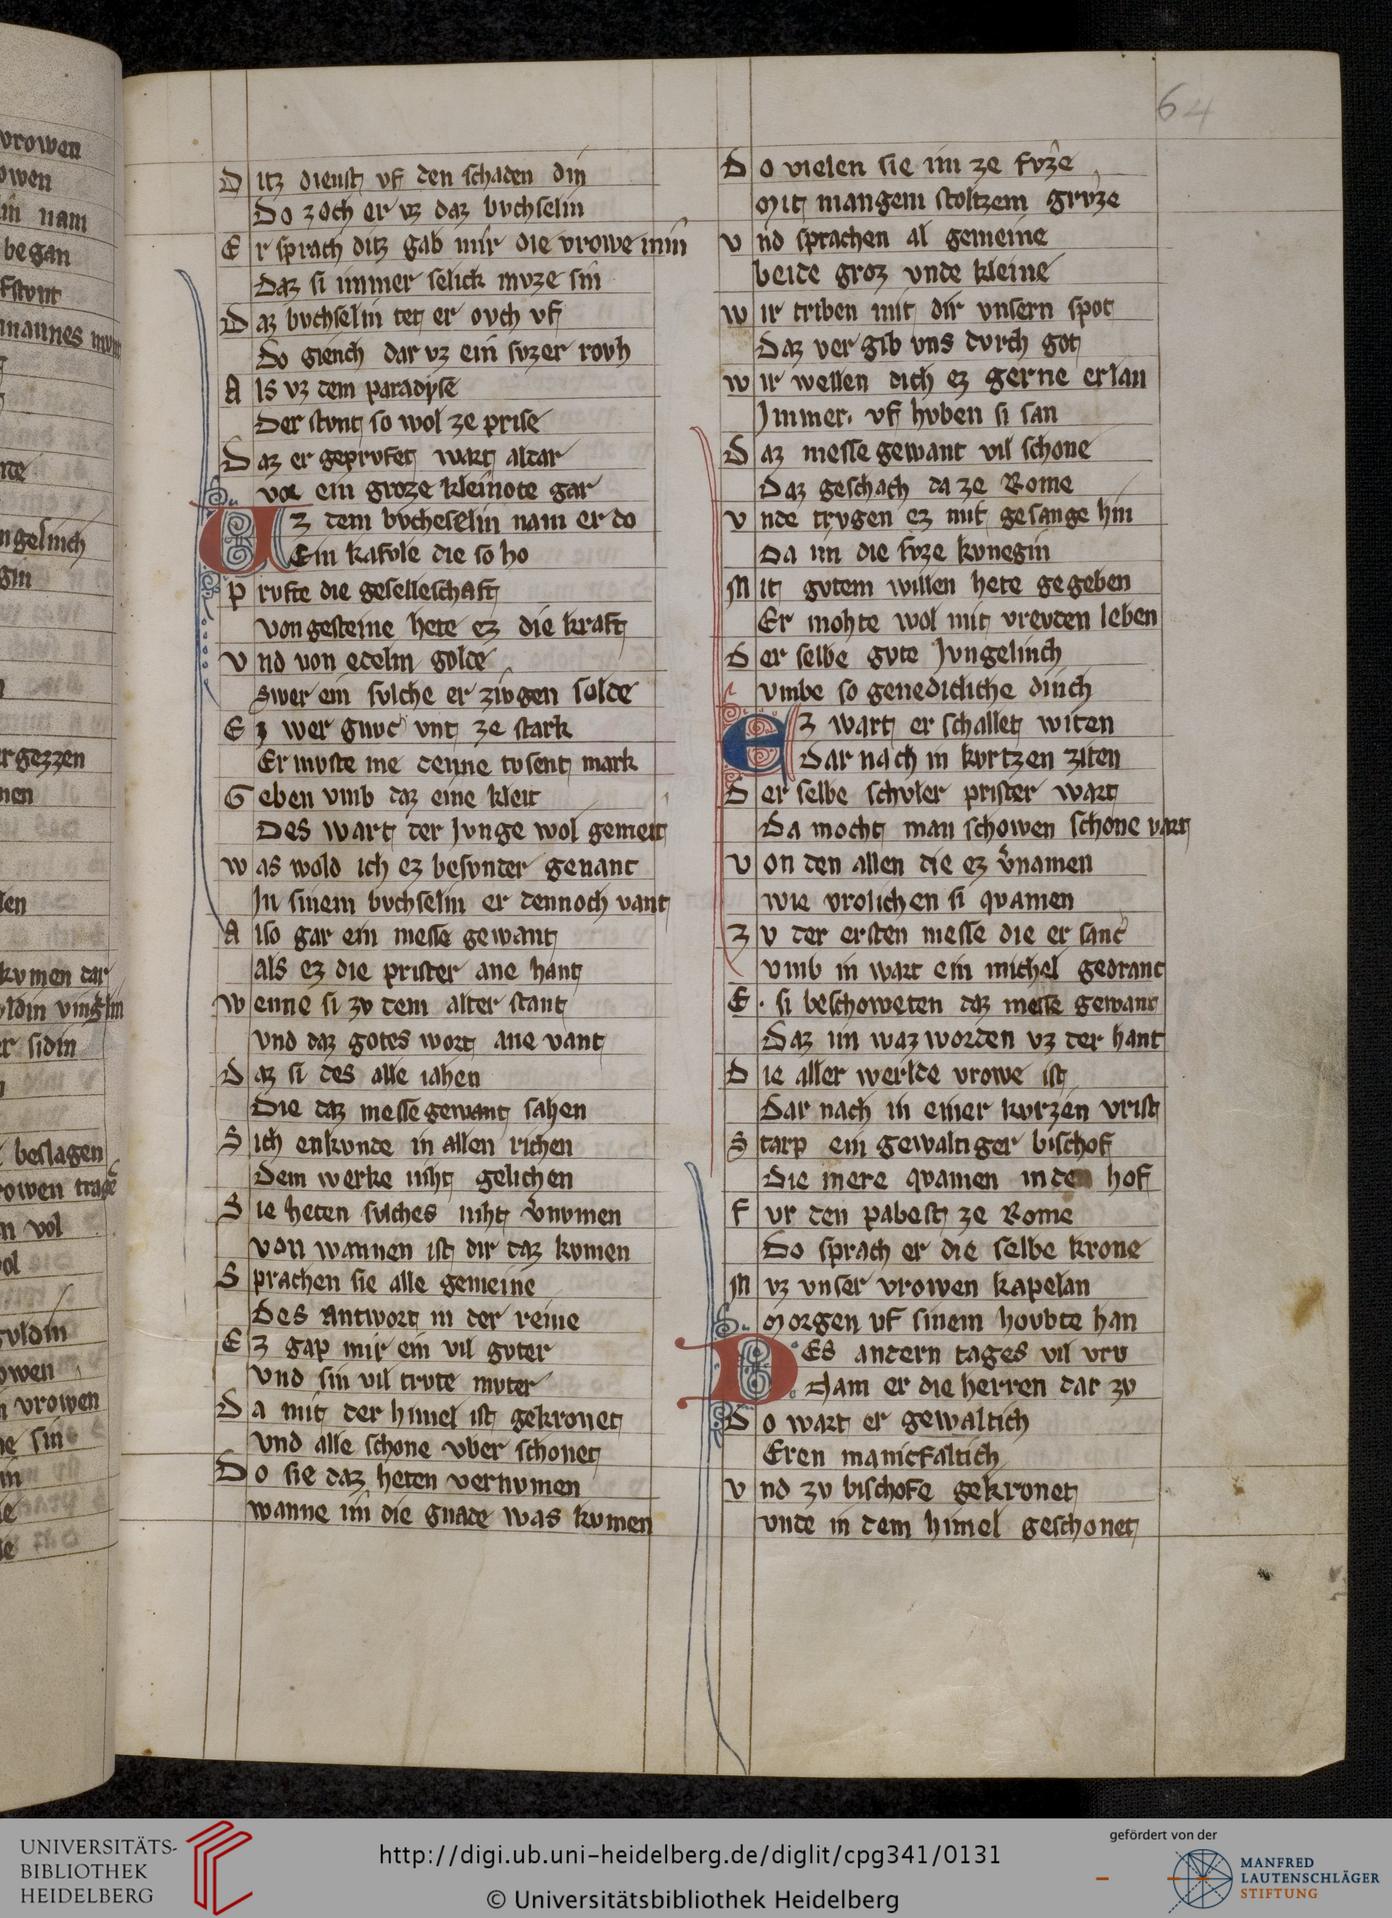 64
Ditz dienst vf den schaden din
Do zoch er vz daz bvchselin
Er sprach ditz gab mir die vrowe min
Daz si immer selick mvze sin
Daz bvchselin tet er ovch vf
Do giench dar vz ein svzer rovh
Als vz dem paradyse
Der stvnt so wol ze prise
Daz er geprvfet wart aldar
vor ein groze kleinote gar
Uz dem bvcheselin nam er do
Ein kasvle die so ho
prvfte die geselleschaft
von gesteine hete ez die kraft
Vnd von edelm golde
Swer ein svlche er zivgen solde
Ez wer gnvc vnt ze stark
Er mvste me denne tvsent mark
Geben vmb daz eine kleit
Des wart der Jvnge wol gemeit
was wold ich ez besvnder genant
In sinem bvchselin er dennoch vant
Also gar ein messe gewant
als ez die prister ane hant
wenne si zv dem alter stant
vnd daz gotes wort ane vant
Daz si des alle iahen
Die daz messe gewant sahen
Sich enkvnde in allen richen
Dem werke niht gelichen
Sie heten svlches niht v̾nvmen
von wannen ist dir daz kvmen
Sprachen sie alle gemeine
Des antwort in der reine
Ez gap mir ein vil gvter
vnd sin vil trvte mvter
Da mit der himel ist gekronet
vnd alle schone vber schonet
Do sie daz heten vernvmen
wanne im die gnade was kvmen
Do vielen sie im ze fvze
Mit mangem stoltzem grvze
vnd sprachen al gemeine
beide groz vnde kleine
wir triben mit dir vnsern spot
Daz ver gib vns dvrch got
wir wellen dich ez gerne erlan
Immer. vf hvben si san
Daz messe gewant vil schone
Daz geschach da ze Rome
vnde trvgen ez mit gesange hin
Da im die svze kvnegin
Mit gvtem willen hete gegeben
Er mohte wol mit vrevden leben
Der selbe gvte Jvngelinch
vmbe so genedicliche dinch
Ez wart er schallet witen
Dar nach in kvrtzen ziten
Der selbe schvler prister wart
Da mocht man schowen schone vart
von den allen die ez v̾namen
wie vrolichen si qvamen
Zv der ersten messe die er sanc
vmb in wart ein michel gedranc
E. si beschoweten daz messe gewant
Daz im waz worden vz der hant
Die aller werlde vrowe ist
Dar nach in einer kvrzen vrist
Starp ein gewaltiger bischof
Die mere qvamen in den hof
fvr den pabest ze Rome
Do sprach er die selbe krone
Mvz vnser vrowen kapelan
Morgen vf sinem hovbte han
Des andern tages vil vrv
Nam er die herren dar zv
Do wart er gewaltich
Eren manicfaltich
vnd zv bischofe gekronet
vnde in dem himel geschonet
vrowen
nam
began
mannes
beslagen
vrowen
UNIVERSITÄTS-
BIBLIOTHEK
HEIDELBERG
http://digi.ub.uni-heidelberg.de/diglit/cpg341/0131
© Universitätsbibliothek Heidelberg
gefördert von der
MANFRED
LAUTENSCHLÄGER
STIFTUNG